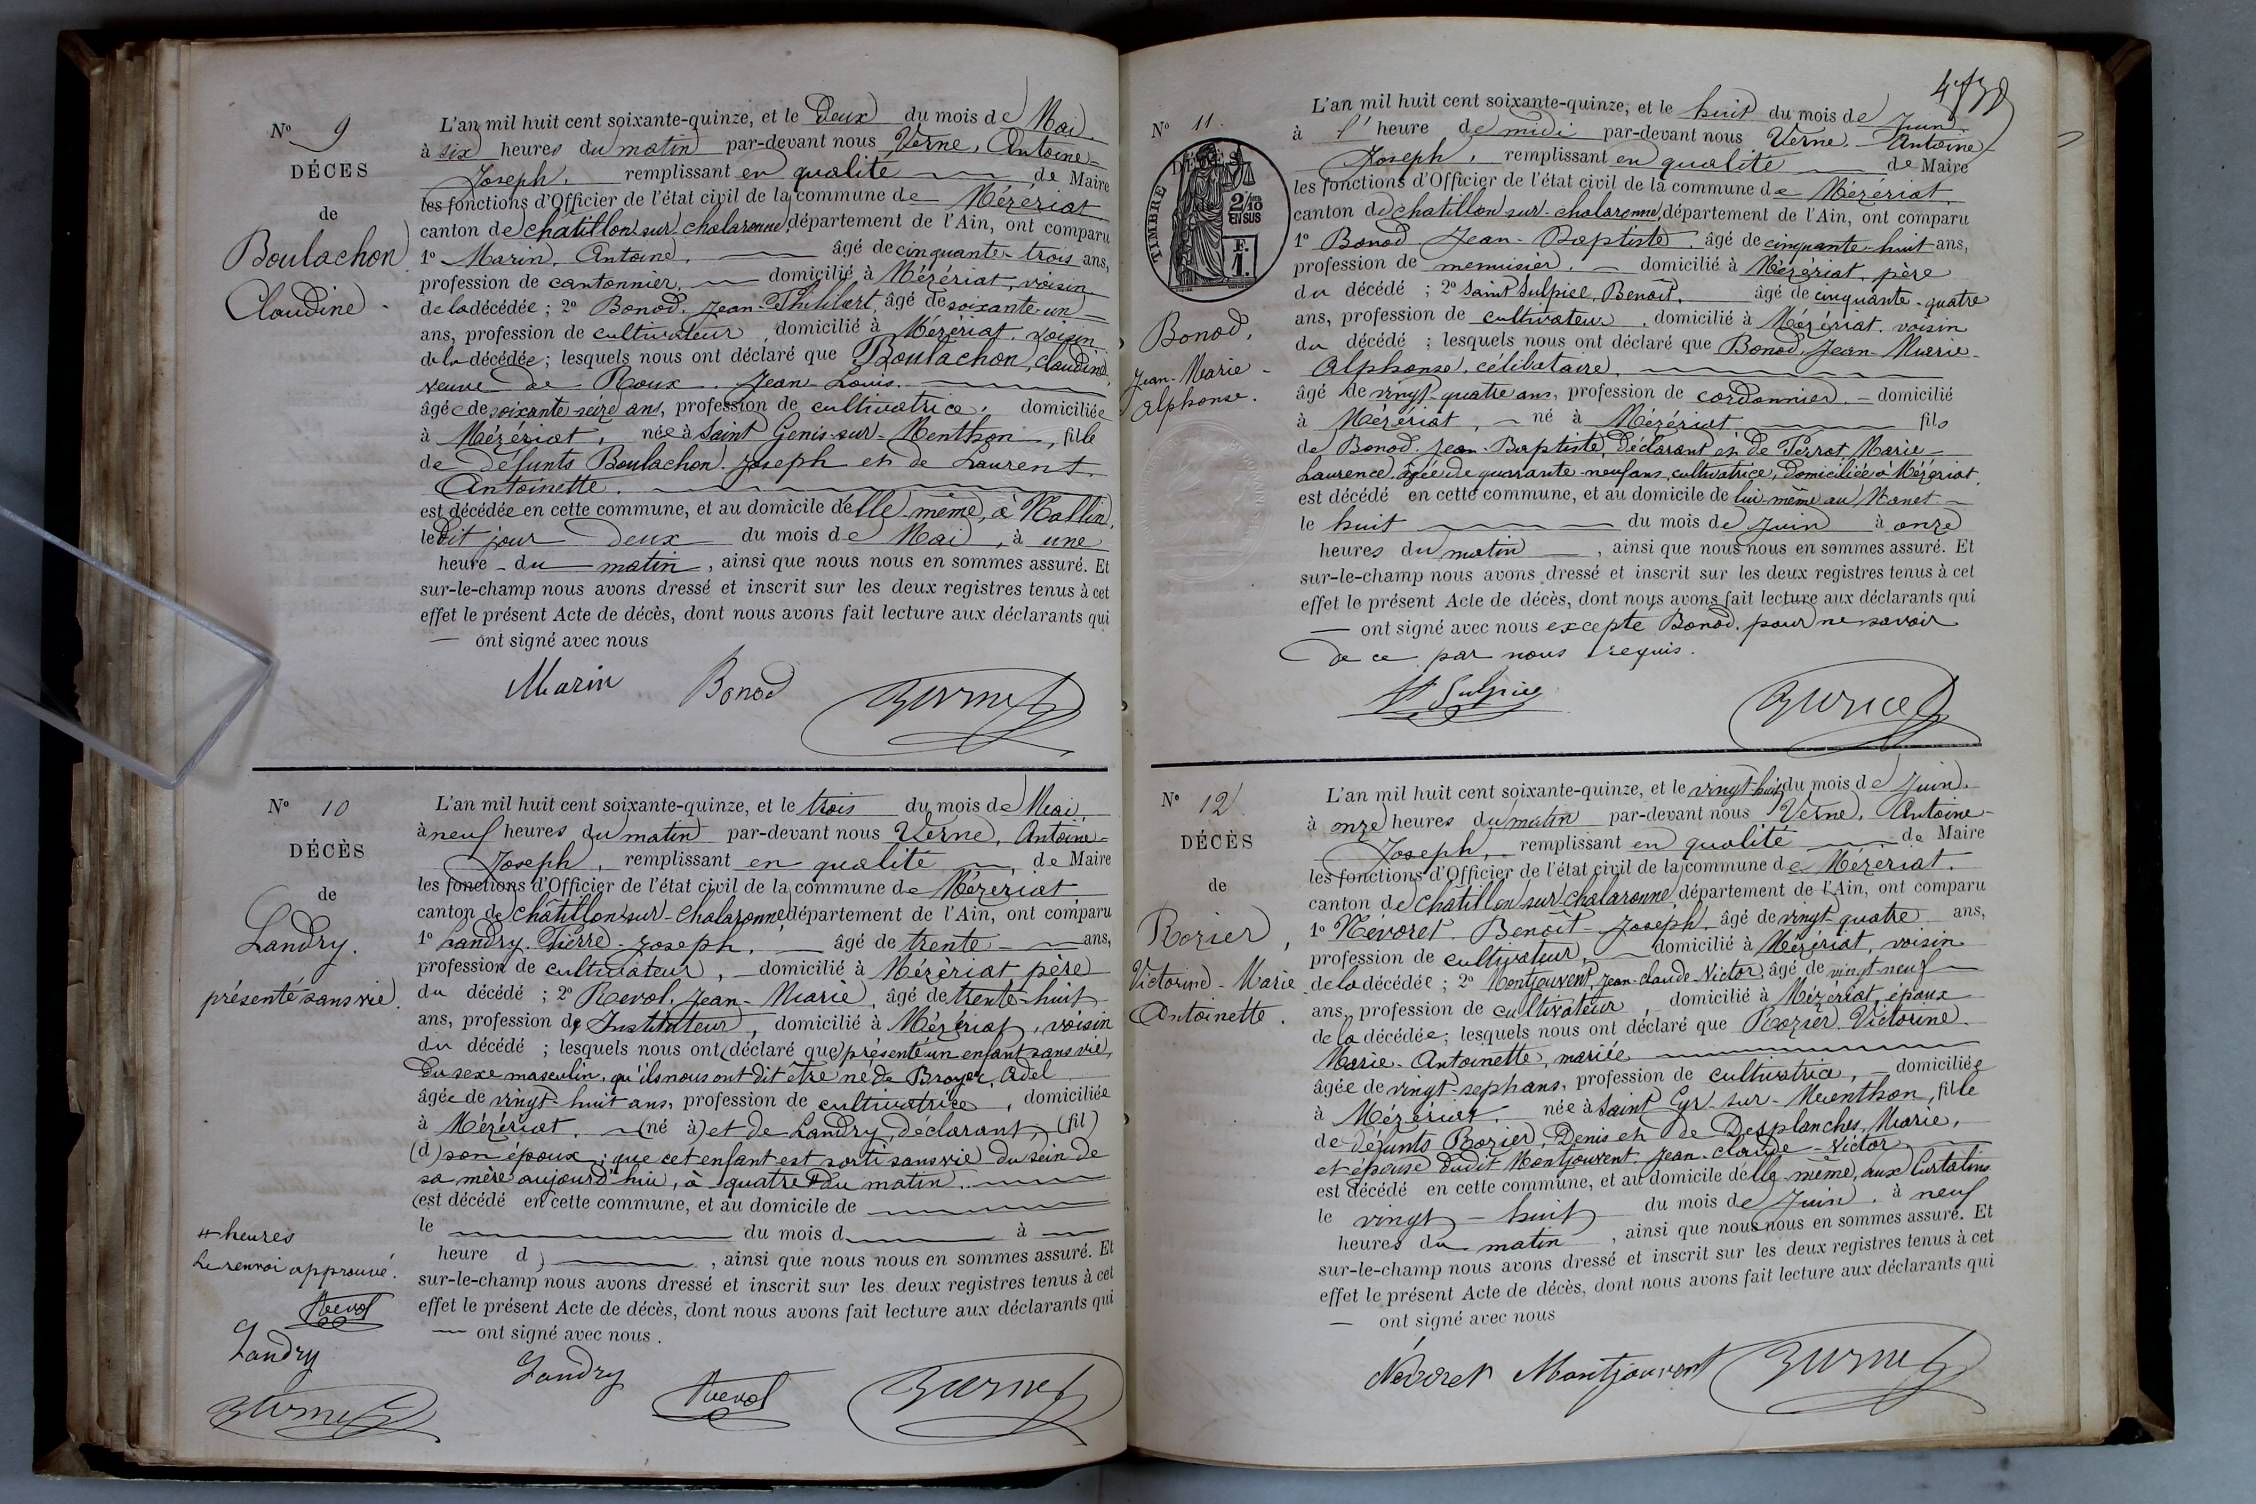 N° 9
DÉCES
de
Boulachon
Claudine
L'an mil huit cent soixante-quinze, et le Deux du mois de Mai
à six heures du matin par-devant nous Verne, Antoine-
Joseph, remplissant en qualité de Maire
les fonctions d'Officier de l'état civil de la commune de Mézériat
canton de chatillon sur-chalaronne, département de l'Ain, ont comparu
1° Marin, Antoine, âgé de cinquante-trois ans,
profession de cantonnier, domicilié à Mézériat, voisin
de la décédée ; 2° Bonod, Jean-Philibert, âgé de soixante-un
ans, profession de cultivateur, domicilié à Mézériat, voisin
de la décédée ; lesquels nous ont déclaré que Boulachon, Claudine,
veuve de Roux, Jean Louis.
âgée de soixante-seize ans, profession de cultivatrice, domiciliée
à Mézériat, née à Saint Genis-sur-Menthon, fille
de défunts Boulachon Joseph et de Laurent
Antoinette.
est décédée en cette commune, et au domicile d'elle même, à Mallin,
le dit jour deux du mois de Mai, à une
heure du matin, ainsi que nous nous en sommes assuré. Et
sur-le-champ nous avons dressé et inscrit sur les deux registres tenus à cet
effet le présent Acte de décès, dont nous avons fait lecture aux déclarants qui
— ont signé avec nous
Marin Bonod
N° 10
DÉCÈS
de
Landry.
présenté sans vie.
L'an mil huit cent soixante-quinze, et le trois du mois de Mai
à neuf heures du matin par-devant nous Verne, Antoine-
Joseph, remplissant en qualité de Maire
les fonctions d'Officier de l'état civil de la commune de Mézériat
canton de châtillon sur-chalaronne, département de l'Ain, ont comparu
1° Landry, Pierre-Joseph, âgé de trente ans,
profession de cultivateur, domicilié à Mézériat père
du décédé ; 2° Revol, Jean-Marie, âgé de trente-huit
ans, profession de Instituteur, domicilié à Mézériat, voisin
du décédé ; lesquels nous ont (déclaré que) présenté un enfant sans vie,
du sexe masculin, qu'ils nous ont dit être né de Broyer, Adel
âgée de vingt-huit ans, profession de cultivatrice, domiciliée
à Mézériat, (né à) et de Landry, déclarant, (fil)
(d) son époux ; que cet enfant est sorti sans vie du sein de
sa mère aujourd'hui, à quatre # du matin.
(est décédé en cette commune, et au domicile de
le du mois d à
heure d ) , ainsi que nous nous en sommes assuré. Et
sur-le-champ nous avons dressé et inscrit sur les deux registres tenus à cet
effet le présent Acte de décès, dont nous avons fait lecture aux déclarants qui
— ont signé avec nous.
# heures
Le renvoi approuvé.
Revol
Landry
Landry Revol
N° 11.
DÉCÈS
TIMBRE
2/10
EN SUS
F.
1.
Bonod,
Jean-Marie-
Alphonse.
L'an mil huit cent soixante-quinze, et le huit du mois de Juin
à l'heure de midi par-devant nous Verne Antoine
Joseph, remplissant en qualité de Maire
les fonctions d'Officier de l'état civil de la commune de Mézériat,
canton de chatillon sur-chalaronne, département de l'Ain, ont comparu
1° Bonod Jean-Baptiste, âgé de cinquante-huit ans,
profession de menuisier, domicilié à Mézériat, père
du décédé ; 2° Saint Sulpice, Benoît, âgé de cinquante-quatre
ans, profession de cultivateur, domicilié à Mézériat, voisin
du décédé ; lesquels nous ont déclaré que Bonod, Jean-Marie-
Alphonse, célibataire,
âgé de vingt-quatre ans, profession de cordonnier, domicilié
à Mézériat, né à Mézériat, fils
de Bonod, Jean-Baptiste, déclarant et de Perrat, Marie-
Laurence, âgée de quarante-neuf ans, cultivatrice, domiciliée à Mézériat,
est décédé en cette commune, et au domicile de lui même au Manet
le huit du mois de Juin à onze
heures du matin, ainsi que nous nous en sommes assuré. Et
sur-le-champ nous avons dressé et inscrit sur les deux registres tenus à cet
effet le présent Acte de décès, dont nous avons fait lecture aux déclarants qui
— ont signé avec nous excepte Bonod, pour ne savoir
de ce par nous requis.
St Sulpice
N° 12
DÉCÈS
de
Rozier,
Victorine-Marie
Antoinette.
L'an mil huit cent soixante-quinze, et le vingt-huit du mois de Juin
à onze heures du matin par-devant nous Verne, Antoine-
Joseph, remplissant en qualité de Maire
les fonctions d'Officier de l'état civil de la commune de Mézériat.
canton de chatillon sur-chalaronne, département de l'Ain, ont comparu
1° Névoret, Benoît-Joseph, âgé de vingt-quatre ans,
profession de cultivateur, domicilié à Mézériat, voisin
de la décédée ; 2° Montjouvent, Jean-claude-Victor, âgé de vingt-neuf
ans, profession de cultivateur, domicilié à Mézériat, époux
de la décédée ; lesquels nous ont déclaré que Rozier Victorine
Marie-Antoinette, mariée
âgée de vingt-sept ans, profession de cultivatrice, domiciliée
à Mézériat, née à Saint Cyr-sur-Menthon, fille
de défunts Rozier, Denis et de Desplanches, Marie,
et épouse dudit Montjouvent Jean-claude-Victor
est décédé en cette commune, et au domicile d'elle même, aux Curtatins
le vingt-huit du mois de Juin, à neuf
heures du matin, ainsi que nous nous en sommes assuré. Et
sur-le-champ nous avons dressé et inscrit sur les deux registres tenus à cet
effet le présent Acte de décès, dont nous avons fait lecture aux déclarants qui
— ont signé avec nous
Névoret Montjouvent